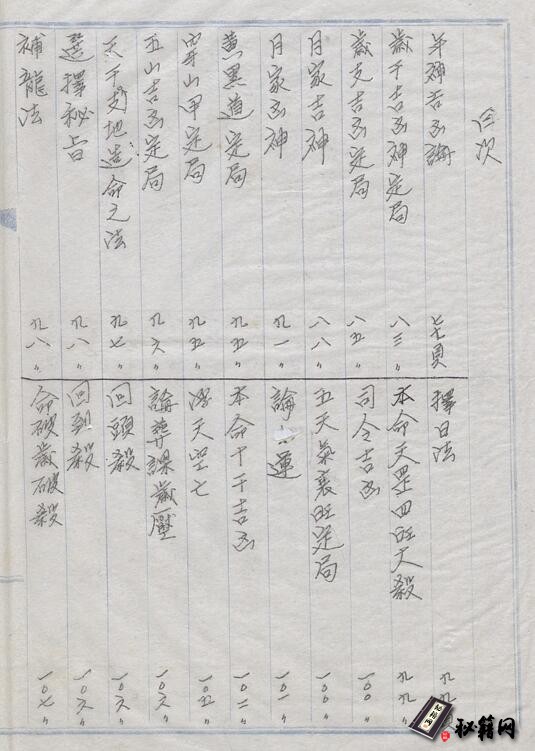 目次
年神吉凶論 七七頁
歲干吉凶神定局 八三〃
歲支吉凶定局 八五〃
月家吉神 八八〃
月家凶神 九一〃
黃黑道定局 九五〃
穿山甲定局 九五〃
五山吉凶定局 九六〃
天干支地造命之法 九七〃
選擇秘旨 九八〃
補龍法 九八〃
擇日法 九九
本命天罡四旺大殺 九九〃
司令吉凶 一〇〇〃
五天氣衰旺定局 一〇〇〃
論 運 一〇一〃
本命十干吉凶 一〇二〃
天罡七 一〇五〃
論葬課歲壓 一〇六〃
回頭殺 一〇六〃
回到殺 一〇六〃
命破歲破殺 一〇七〃
秘籍网